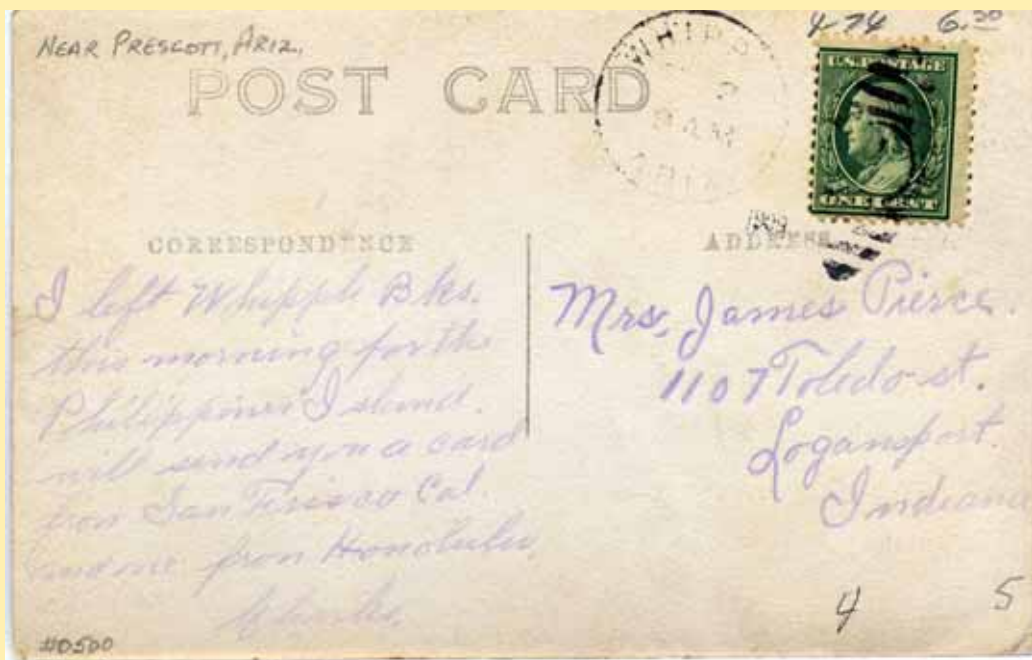 NEAR PRESCOTT, ARIZ.
474 6.50
POST CARD
WHIPP
ARIZ
U.S. POSTAGE
ONE CENT
1909
CORRESPONDENCE
ADDRESS
I left Whipple Bks.
this morning for the
Philippines Island.
will send you a card
from San Frisco Cal.
and one from Honolulu.
Charles.
Mrs, James Pierce.
1107 Toledo st.
Logansport.
Indiana
4 5
#0500